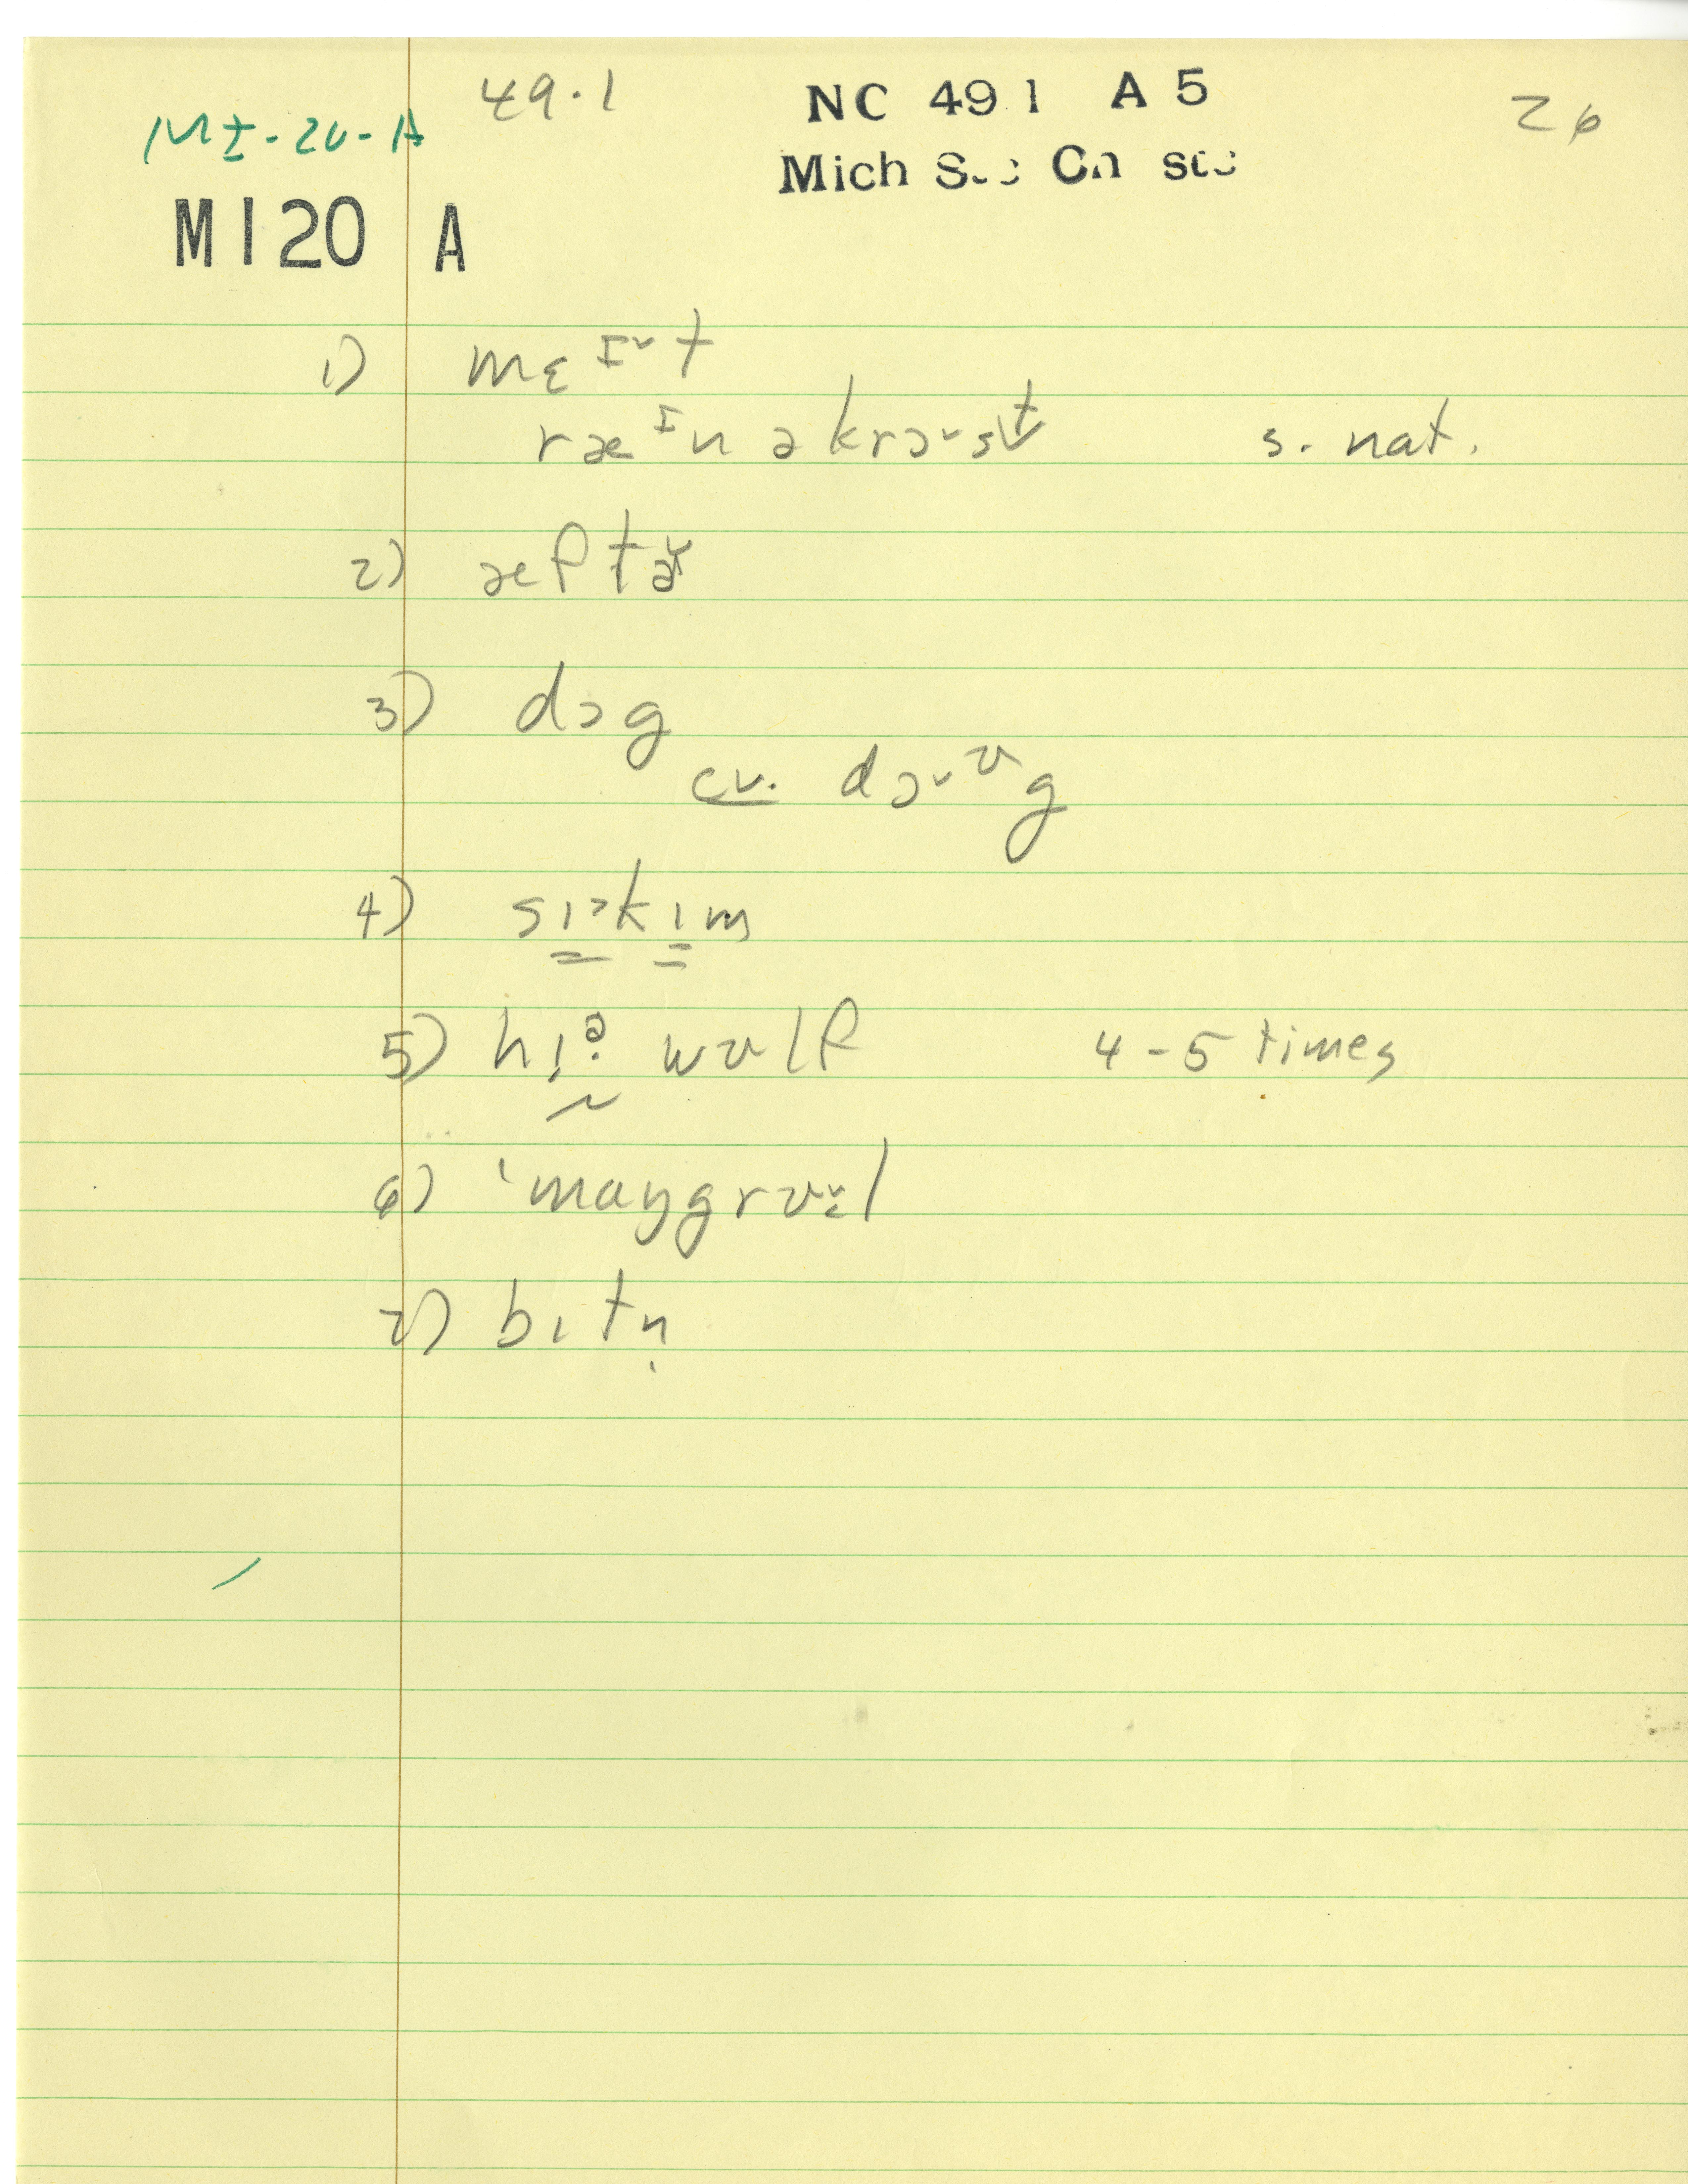 49.1 NC 49 1 A 5 26
MI-20-A
Mich
M I 20 A
1) mɛᴵ˅t
ræᴵn əkrɔ˅st s. nat.
2) æftɚ
3) dɔg
cv. dɔ˅ᶷg
4) sɪək ɪm
5) hɪə wʊlf 4-5 times
6) 'mangrʊl
7) bɪtn̩